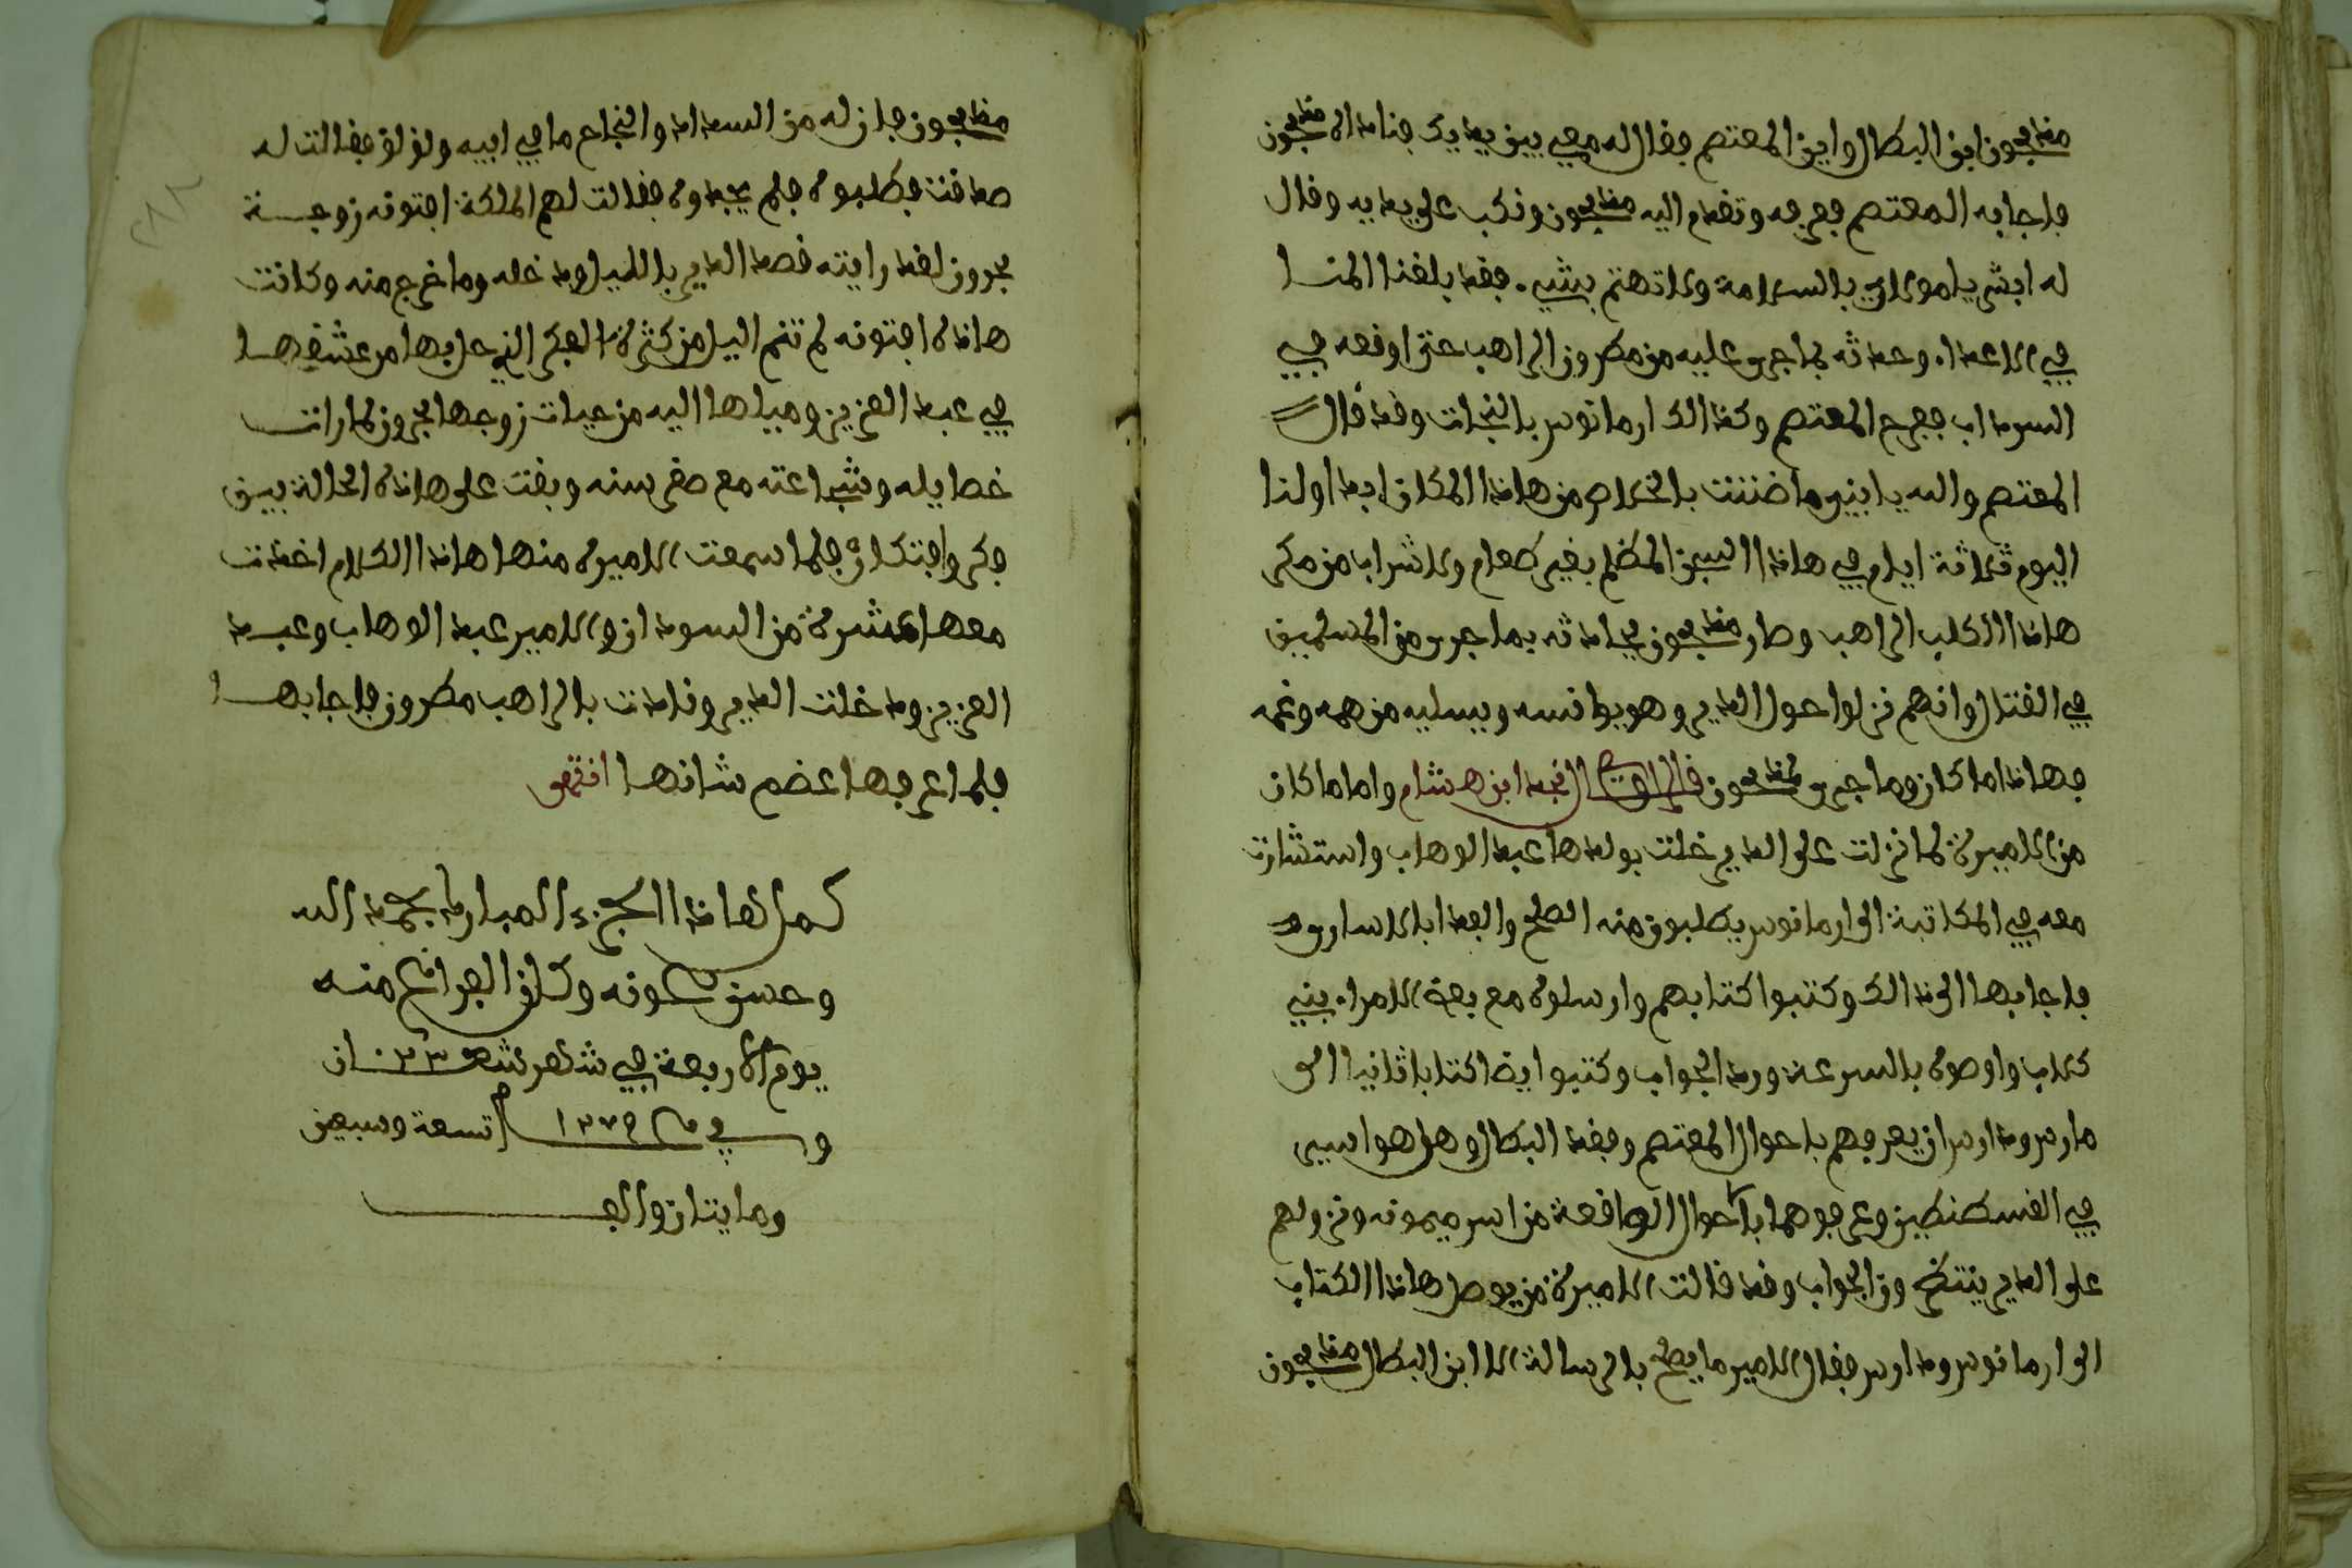 مذبحون ابن البطال وابن المعتصم فقال له معي بين يديك فناداه مذبحون
فاجابه المعتصم فعرفه وتقدم اليه مذبحون وركب على يديه وقال
له ابشر يا مولاي بالسلامة ولا تهتم بشيء. فقد بلغنا المنا
في الاعداء. وحدثه بما جرى عليه من مطرون الراهب حتى اوقعه في
السرداب ففرح المعتصم وكذالك ارمانوس بالنجات وقد قال
المعتصم والله يا ابني ما ضننت بالخلاص من هاذا المكان ابدا ولنا
اليوم ثلاثة ايام في هاذا السجن المظلم بغير طعام ولا شراب من مكر
هاذا الكلب الراهب وصار مذبحون يحادثه بما جرى من المسلمين
في القتال وانهم نزلوا حول الدير وهو يوانسه ويسليه من همه وغمه
فهاذا ما كان وما جرى لمذبحون قال الراوي النجد ابن هشام واما ما كان
من الاميرة لما نزلت على الدير خلت بولدها عبد الوهاب واستشارت
معه في المكاتبة الى ارمانوس يطلبون منه الصلح والفدا بالاسارى
فاجابها الى ذالك وكتبوا كتابهم وارسلوه مع بعض الامراء بني
كلاب واوصوه بالسرعة ورد الجواب وكتبوا ايضا كتابا ثانيا الى
مارس وداراس ان يعرفهم باحوال المعتصم وفقد البطال وهل هو اسير
في القسطنطين وعرفوهما بالاحوال الواقعة من اسر ميمونه ونزولهم
على الدير ينتظرون الجواب وقد قالت الاميرة من يوصل هاذا الكتاب
الى ارمانوس وداراس فقال الامير ما يصلح بالرسالة الا ابن البطال مذبحون
مذبحون فان له من السعادة والنجاح ما في ابيه ولؤلؤ فقالت له
صدقت فطلبوه فلم يجدوه فقالت لهم الملكة افتونه زوجة
بحرون لقد رايته قصد الدير بالليل ودخله وما خرج منه وكانت
هاذه افتونه لم تنم اليل من كثرة الفكر الذي حل بها من عشقها
في عبد العزيز وميلها اليه من حيات زوجها بحرون لما رات
خصايله وشجاعته مع صغر سنه وبقت على هاذه الحالة بين
فكر وافتكار فلما سمعت الاميرة منها هاذا الكلام اخذت
معها عشرة من السودان والامير عبد الوهاب وعبد
العزيز ودخلت الدير ونادت بالراهب مطرون فاجابها
فلما عرفها عضم شانها انتهى
كمل هاذا الجزء المبارك بحمد الله
وحسن عونه وكان الفراغ منه
يوم الاربعة في شهر شعبان
وفي عام ١٢٧٩ تسعة وسبعين
ومايتان والف